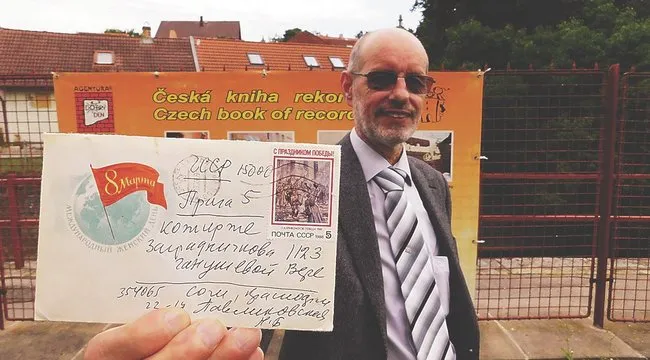 AGENTURA
DOBRÝ
DEN
Česká kniha rekor
Czech book of record
8 Марта
МЕЖДУНАРОДНЫЙ ЖЕНСКИЙ ДЕНЬ
С ПРАЗДНИКОМ ПОБЕДЫ!
ПОЧТА СССР 5
ЧССР 15000
Прага 5
Коширже
Заградничкова 1123
Ганушевой Вере
354065 Сочи
22-14 Павликовская